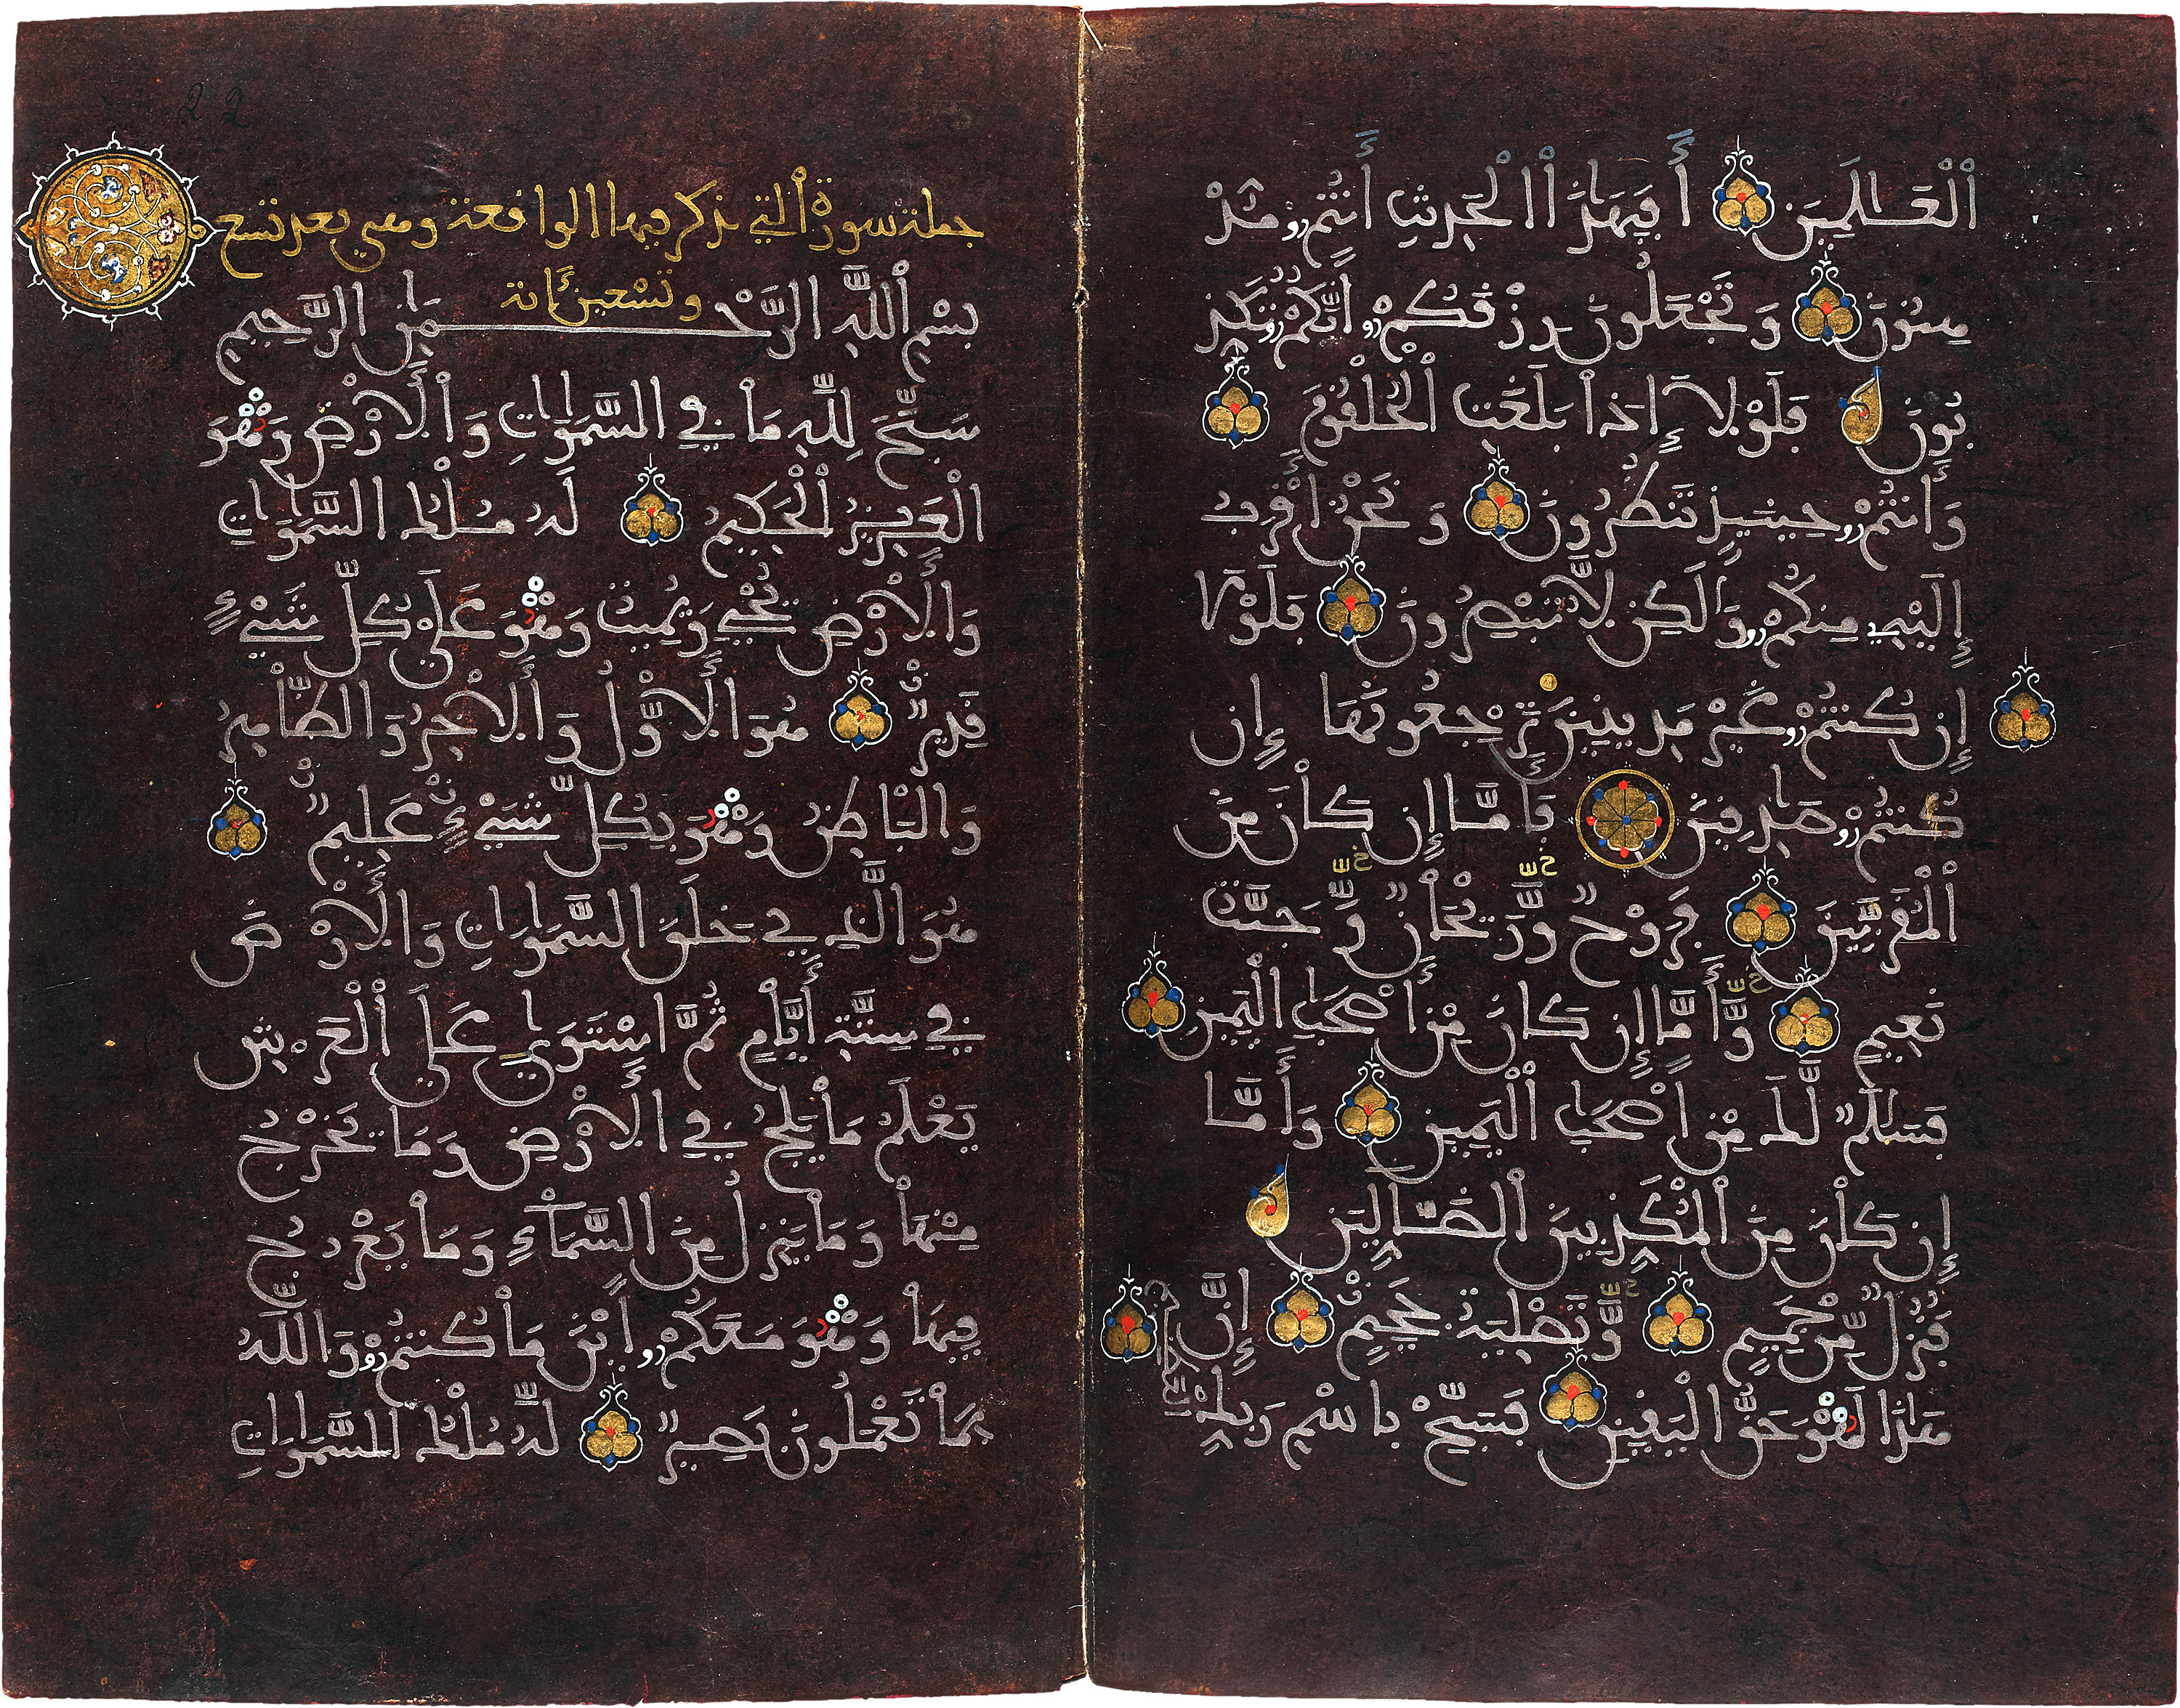 الْعَالَمِينَ أَفَبِهَذَا الْحَدِيثِ أَنتُمُ مُّدْ
هِنُونَ وَتَجْعَلُونَ رِزْقَكُمُ أَنَّكُمْ تُكَذِّ
بُونَ فَلَوْلَا إِذَا بَلَغَتِ الْحُلْقُومَ
وَأَنتُمْ حِينَئِذٍ تَنظُرُونَ وَنَحْنُ أَقْرَبُ
إِلَيْهِ مِنكُمْ وَلَكِن لَّا تُبْصِرُونَ فَلَوْلَا
إِن كُنتُمْ غَيْرَ مَدِينِينَ تَرْجِعُونَهَا إِن
كُنتُمْ صَادِقِينَ فَأَمَّا إِن كَانَ مِنَ
الْمُقَرَّبِينَ فَرَوْحٌ وَّرَيْحَانٌ وَّجَنَّتُ
نَعِيمٍ وَّأَمَّا إِن كَانَ مِنْ أَصْحَابِ الْيَمِينِ
فَسَلَامٌ لَّكَ مِنْ أَصْحَابِ الْيَمِينِ وَأَمَّا
إِن كَانَ مِنَ الْمُكَذِّبِينَ الضَّالِّينَ
فَنُزُلٌ مِّنْ حَمِيمٍ وَّتَصْلِيَةُ جَحِيمٍ إِنَّ
هَذَا لَهْوَ حَقُّ الْيَقِينِ فَسَبِّحْ بِاسْمِ رَبِّكَ
الْعَظِيمِ
22
جملة سورة التي يذكر فيها الواقعة وهي بعد تسع
وتسعين ءاية
بِسْمِ اللَّهِ الرَّحْمَنِ الرَّحِيمِ
سَبَّحَ لِلَّهِ مَا فِي السَّمَوَاتِ وَالْأَرْضِ وَهْوَ
الْعَزِيزُ الْحَكِيمُ لَهُ مُلْكُ السَّمَوَاتِ
وَالْأَرْضِ يُحْيِي وَيُمِيتُ وَهْوَ عَلَى كُلِّ شَيْءٍ
قَدِيرٌ هُوَ الْأَوَّلُ وَالْأَخِرُ وَالظَّاهِرُ
وَالْبَاطِنُ وَهْوَ بِكُلِّ شَيْءٍ عَلِيمٌ
هُوَ الَّذِي خَلَقَ السَّمَوَاتِ وَالْأَرْضَ
فِي سِتَّةِ أَيَّامٍ ثُمَّ اسْتَوَى عَلَى الْعَرْشِ
يَعْلَمُ مَا يَلِجُ فِي الْأَرْضِ وَمَا يَخْرُجُ
مِنْهَا وَمَا يَنزِلُ مِنَ السَّمَاءِ وَمَا يَعْرُجُ
فِيهَا وَهْوَ مَعَكُمُ أَيْنَ مَا كُنتُمْ وَاللَّهُ
بِمَا تَعْمَلُونَ بَصِيرٌ لَّهُ مُلْكُ السَّمَوَاتِ